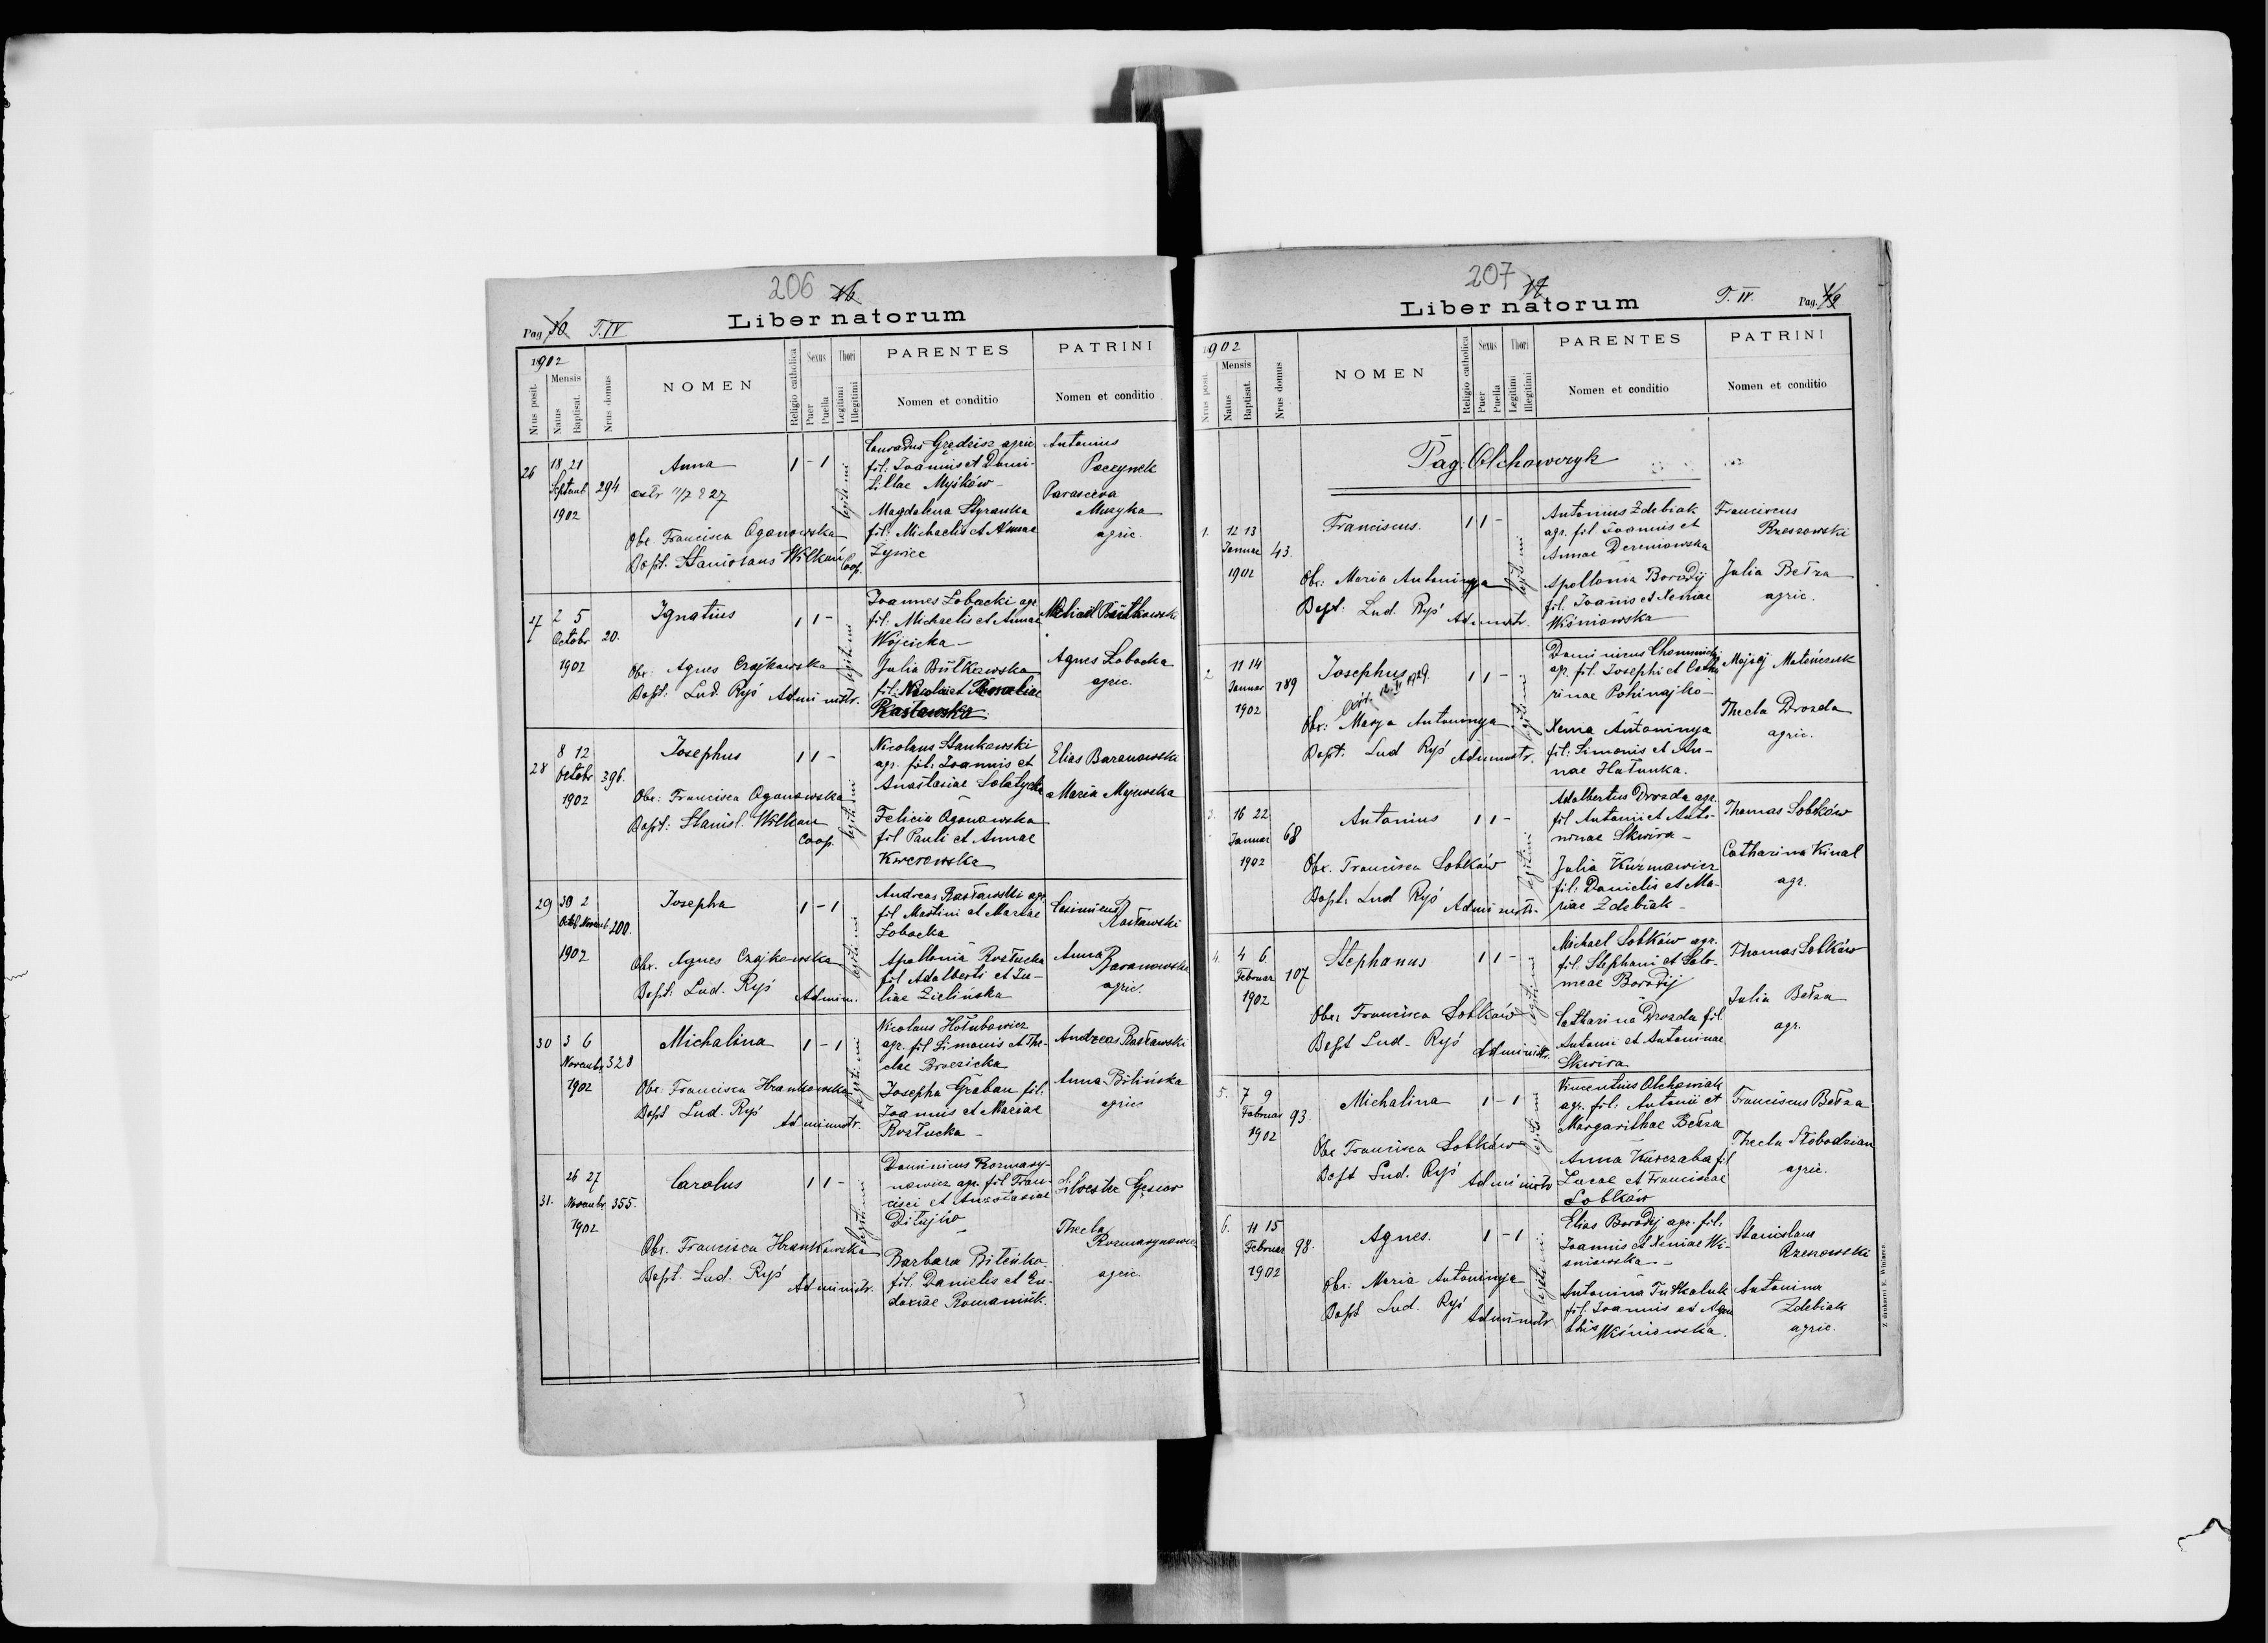 206 16
Liber natorum
Pag 10 T. IV
1902
Nrus posit.
Mensis
Natus
Baptisat.
Nrus domus
NOMEN
Religio catholica
Sexus
Puer
Puella
Thori
Legitimi
Illegitimi
PARENTES
Nomen et conditio
PATRINI
Nomen et conditio
26
18 21
Septemb
1902
294
Anna
1 - 1
legitimi
Obs. Francisca Oganowska
Bapt. Stanislaus Wilkoń Coop.
Conradus Grędzisz agric
fil: Joannis et Domi-
tillae Myśków -
Magdalena Styranka
fil: Michaelis et Annae
Żywiec
Antonius
Poczynek
Parasceva
Muzyka
agric.
27
2 5
Octobr
1902
20.
Ignatius
1 1 -
legitimi
Obs. Agnes Czajkowska
Bapt. Lud. Ryś Administr.
Joannes Łobacki agr
fil: Michaelis et Annae
Wójcicka -
Julia Bułkowska
fil: Nicolai et
Agnes Łobacka
agric.
28
8 12
Octobr
1902
396.
Josephus
1 1 -
legitimi
Obs: Francisca Oganowska
Bapt: Stanisl. Wilkon
Coop.
Nicolaus Stankowski
agr. fil: Joannis et
Anastasiae Solatycka
Felicia Oganowska
fil Pauli et Annae
Elias Baranowski
Maria Majewska
29
30 2
Octob Novemb
1902
200.
Josepha
1 - 1
legitimi
Obs. Agnes Czajkowska
Bapt. Lud. Ryś Admin.
Andreas Rasławski agr.
fil Martini et Mariae
Łobacka
Apollonia Rostucka
fil Adalberti et Ju-
liae Zielińska
Casimirus
Rasławski
Anna
Baranowska
agric.
30
3 6
Novemb
1902
328
Michalina
1 - 1
legitimi
Obs. Francisca Hrankowska
Bapt Lud. Ryś Administr.
Nicolaus Hołubowicz
agr. fil Simonis et The-
clae Brzezicka
Josepha Graban fil:
Joannis et Mariae
Rostucka -
Andreas Rasławski
Anna Bilińska
agric
31.
26 27
Novembr
1902
355.
Carolus
1 1 -
legitimi
Obs. Francisca Hrankowska
Bapt. Lud. Ryś Administr.
Dominicus Rozmary-
nowicz agr. fil Fran-
cisci et Anastasiae
Barbara Bileńka
fil. Danielis et Eu-
doxiae Romaniuk.
Silvester Gęsior
Thecla
Rozmarynowicz
agric.
207 17
Liber natorum
T. IV. Pag.
1902
Nrus posit.
Mensis
Natus
Baptisat.
Nrus domus
NOMEN
Religio catholica
Sexus
Puer
Puella
Thori
Legitimi
Illegitimi
PARENTES
Nomen et conditio
PATRINI
Nomen et conditio
Pag: Olchowczyk
1.
12 13
Januar
1902
43.
Franciscus.
1 1 -
legitimi
Obs: Maria Antoninya
Bapt. Lud. Ryś Administr.
Antonius Zdebiak
agr. fil Joannis et
Annae Dereniowska
Apollonia Borodij
fil. Joannis et Xeniae
Wiśniowska
Franciscus
Rzeszowski
Julia Bełza
agric.
2
11 14
Januar
1902
189
Josephus
1 1 -
legitimi
Obs: Marya Antoninya
Bapt. Lud Ryś Administr.
Dominicus
agr. fil. Josephi et Catha
rinae
Xenia Antoninya
fil: Simonis et An-
nae Hałunka.
Thecla Drozda
agric.
3.
16 22
Januar
1902
68
Antonius
1 1 -
legitimi
Obs. Francisca Sobków
Bapt. Lud Ryś Administr.
Adalbertus Drozda agr.
fil Antonii et Anto-
ninae Skwira -
Julia Kuźmowicz
fil. Danielis et Ma-
riae Zdebiak -
Thomas Sobków
Catharina Kinal
agr.
4.
4 6.
Februar
1902
107
Stephanus
1 1 -
legitimi
Obs: Francisca Sobków
Bapt Lud. Ryś Administr.
Michael Sobków agr.
fil. Stephani et Salo-
meae Borodij
Catharina Drozda fil
Antonii et Antoninae
Skwira
Thomas Sobków
Julia Bełza
agr.
5.
7 9
Februar
1902
93.
Michalina
1 - 1
legitimi
Obs Francisca Sobków
Bapt Lud. Ryś Administr
Vincentius Olchowiak
agr. fil: Antonii et
Margarithae Bełza
Anna Kurczaba fil
Lucae et Franciscae
Sobków
Franciscus Bełza
Thecla Słobodzian
agric.
6.
11 15
Februar
1902
98.
Agnes.
1 - 1
legitimi
Obs. Maria Antoninya
Bapt Lud. Ryś Administr
Elias Borodij agr. fil:
Joannis et Xeniae Wi-
śniowska -
Antonina Tutkaluk
fil. Joannis et Agne
this Wiśniowska.
Stanislaus
Rzeszowski
Antonina
Zdebiak
agric.
Z drukarni E. Winiarza